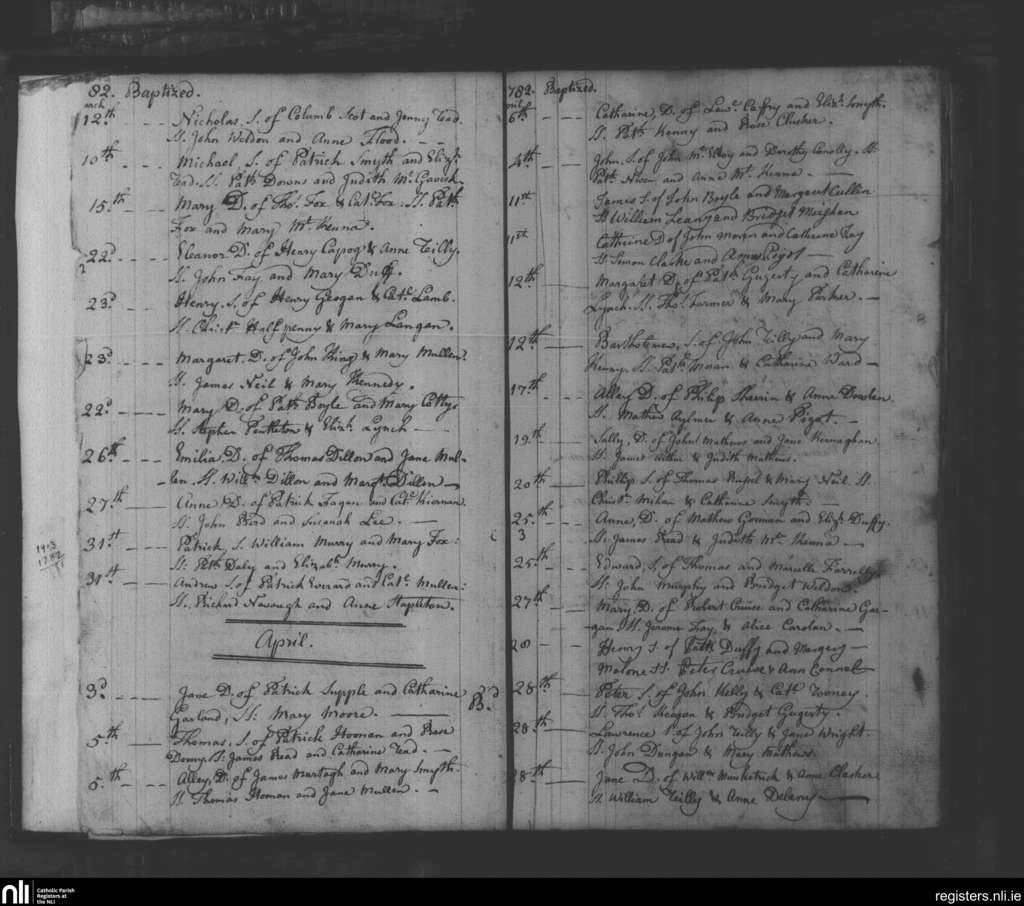 82. Baptized.
arch
12th Nicholas, S. of Columb Scot and Jenny Tead.
SS. John Weldon and Anne Flood.
10th Michael, S. of Patrick Smyth and Eliz.
Tead. SS. Patk Downs and Judith Mc Gavish.
15th Mary D. of Thos. Fox & Cat. Fox. SS. Patk
Fox and Mary Mc Kenna.
22d Eleanor D. of Henry & Anne Tilly.
SS. John Fay and Mary Duff.
23d Henry. S. of Henry Geogan & Cat. Lamb.
SS. Halfpenny & Mary Langan.
23d Margaret. D. of John King & Mary Mullen.
SS. James Neil & Mary Kennedy.
22d Mary D. of Patk Boyle and Mary
SS. Stephen Penkleton & Eliz. Lynch
26th Emilia. D. of Thomas Dillon and Jane Mul-
len. SS. Willm Dillon and Margt Dillon
27th Anne D. of Patrick Fagan and Cat. Kiernan
SS. John Read and Susanah Lee.
31st Patrick, S. William Murry and Mary Fox:
SS: Patk Daly and Elizabh Murry.
31st Andrew S. of Patrick Everard and Cat. Mullen:
SS. Richard Navaugh and Anne Stapleton.
April.
3d Jane D. of Patrick Supple and Catharine
Garland, SS: Mary Moore.
5th Thomas, S. of Patrick Hoonan and Rose
SS. James Read and Catharine Tead.
5th Alley, D. of James Murtagh and Mary Smyth.
SS Thomas Hoonan and Jane Mullen.
782. Baptized.
6th Catharine, D. of Lawe. Caffry and Elizh Smyth.
SS. Patk Kenny and Rose Clusker.
4th John, S. of John Mc Elroy and Dorothy Conolly. SS.
Patk and Anne Mc Kenna.
11th James S. of John Boyle and Margaret Cullin
SS William Leany and Bridget Meighan
11th Cathrine D of John and Cathrine Fay
SS Simon Clarke and Anne Pigot
12th Margaret D. of Patk Gugerty and Catharine
Lynch. SS. Thos. Farmer & Mary Parker.
12th Bartholomew, S. of John Tilly and Mary
Henry. SS. Patk Moran & Catharine Ward
17th Alley D. of Philip Sherrin & Anne Dowden.
SS. Mathew Aylmer & Anne Pigot.
19th Sally, D. of John Mathews and Jane Kernaghan.
SS. James & Judith Mathews.
20th Phillip S. of Thomas & Mary Neil. SS
Christr. & Catharine Smyth.
25th Anne, D. of Mathew Gorman and Eliz. Duffy.
SS. James Read & Judith Mc Kenna
25th Edward, S. of Thomas and Farrelly
SS. John Murphy and Bridget Weldon.
27th Mary, D. of Robert Cruise and Catharine Gar-
gan, SS. Jerome Fay, & Alice Carolan.
28 Henry S. of Patk Duffy and Margery
Malone SS. Peter Cruise & Ann Connel
28th Peter S. of John Kelly & Cath. Tooney.
SS. Thos. Keegan & Bridget Gugerty.
28th Lawrence S. of John Tilly & Jane Wright.
SS. John Dungan & Mary Mathews.
28th Jane D. of Willm & Anne Clasker
SS. William Tilly & Anne Delany
nli
Catholic Parish
Registers at
the NLI
registers.nli.ie